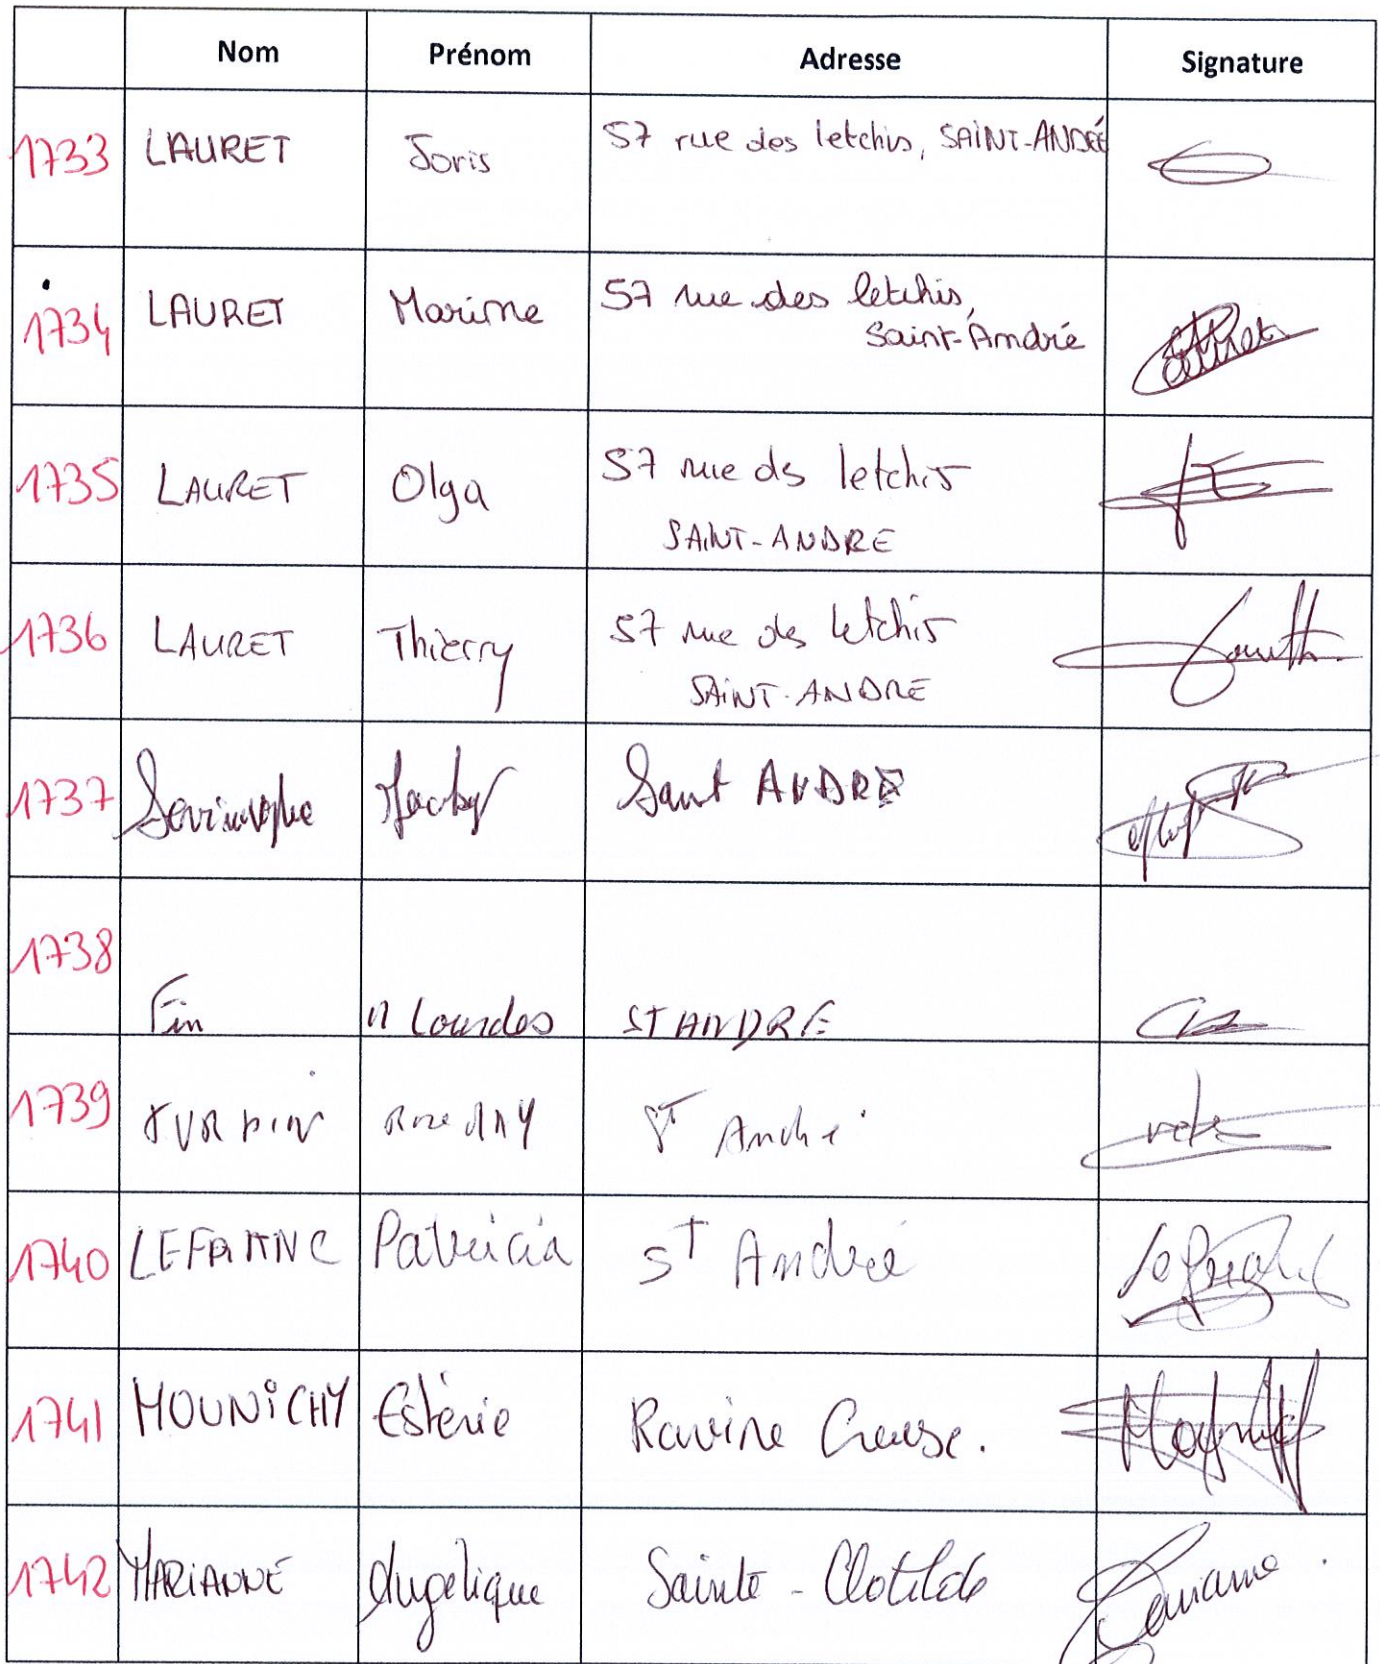 Nom Prénom Adresse Signature
1733 LAURET Joris 57 rue des letchis, SAINT-ANDRÉ
1734 LAURET Marine 57 rue des letchis,
Saint-André
1735 LAURET Olga 57 rue ds letchis
SAINT-ANDRE
1736 LAURET Thierry 57 rue ds letchis
SAINT-ANDRE
1737 Jacky Saint ANDRE
1738 Fin Lourdes ST ANDRE
1739 TURPIN ST André
1740 LEFRANC Patricia ST Andrée
1741 MOUNICHY Estérie Ravine Creuse.
1742 MARIANNE Angelique Sainte-Clotilde